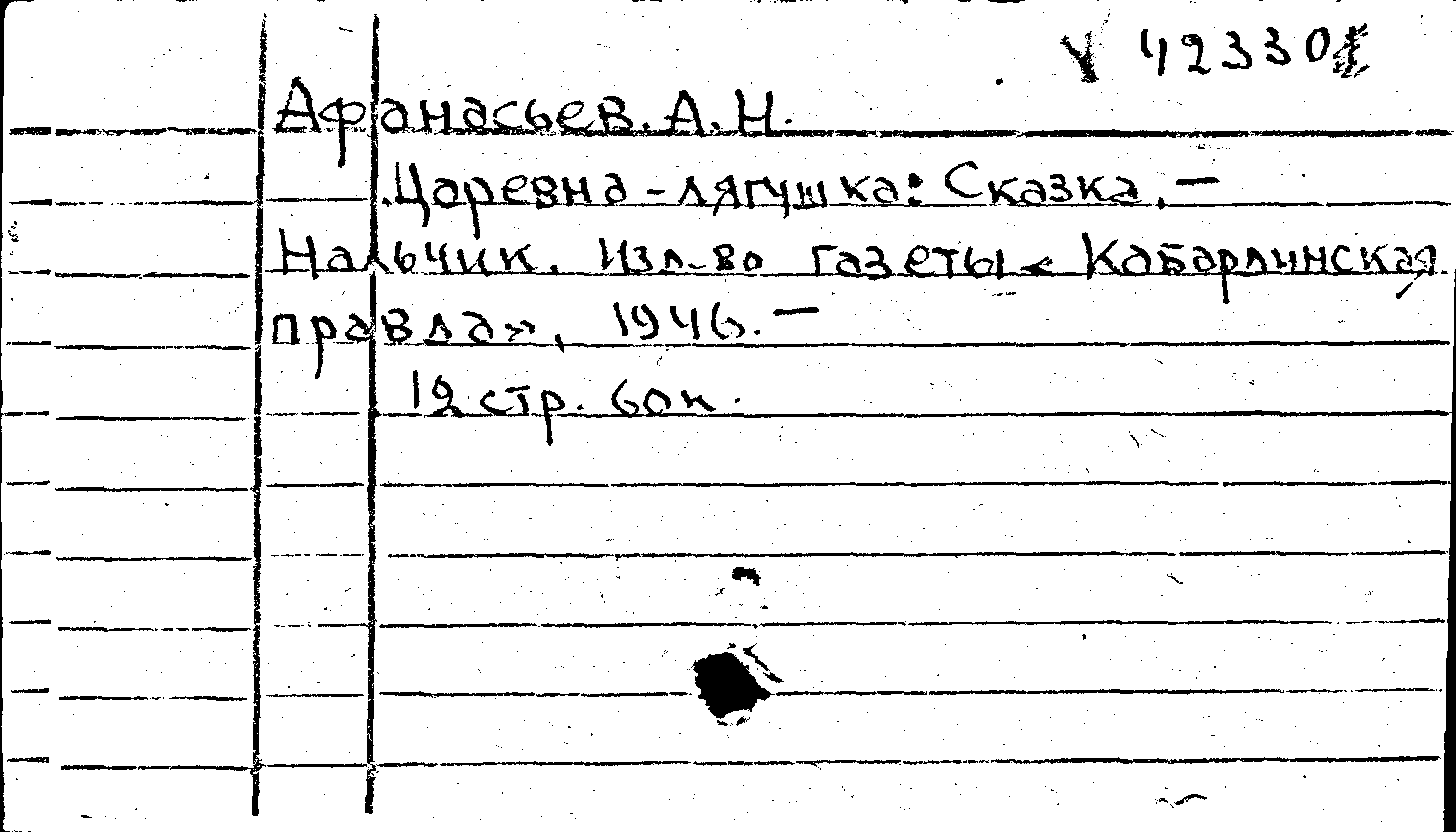 V 42330
Афанасьев. А. Н.
Царевна-лягушка: Сказка. —
Нальчик. Изд-во газеты «Кабардинская
правда», 1946. —
12 стр. 60к.